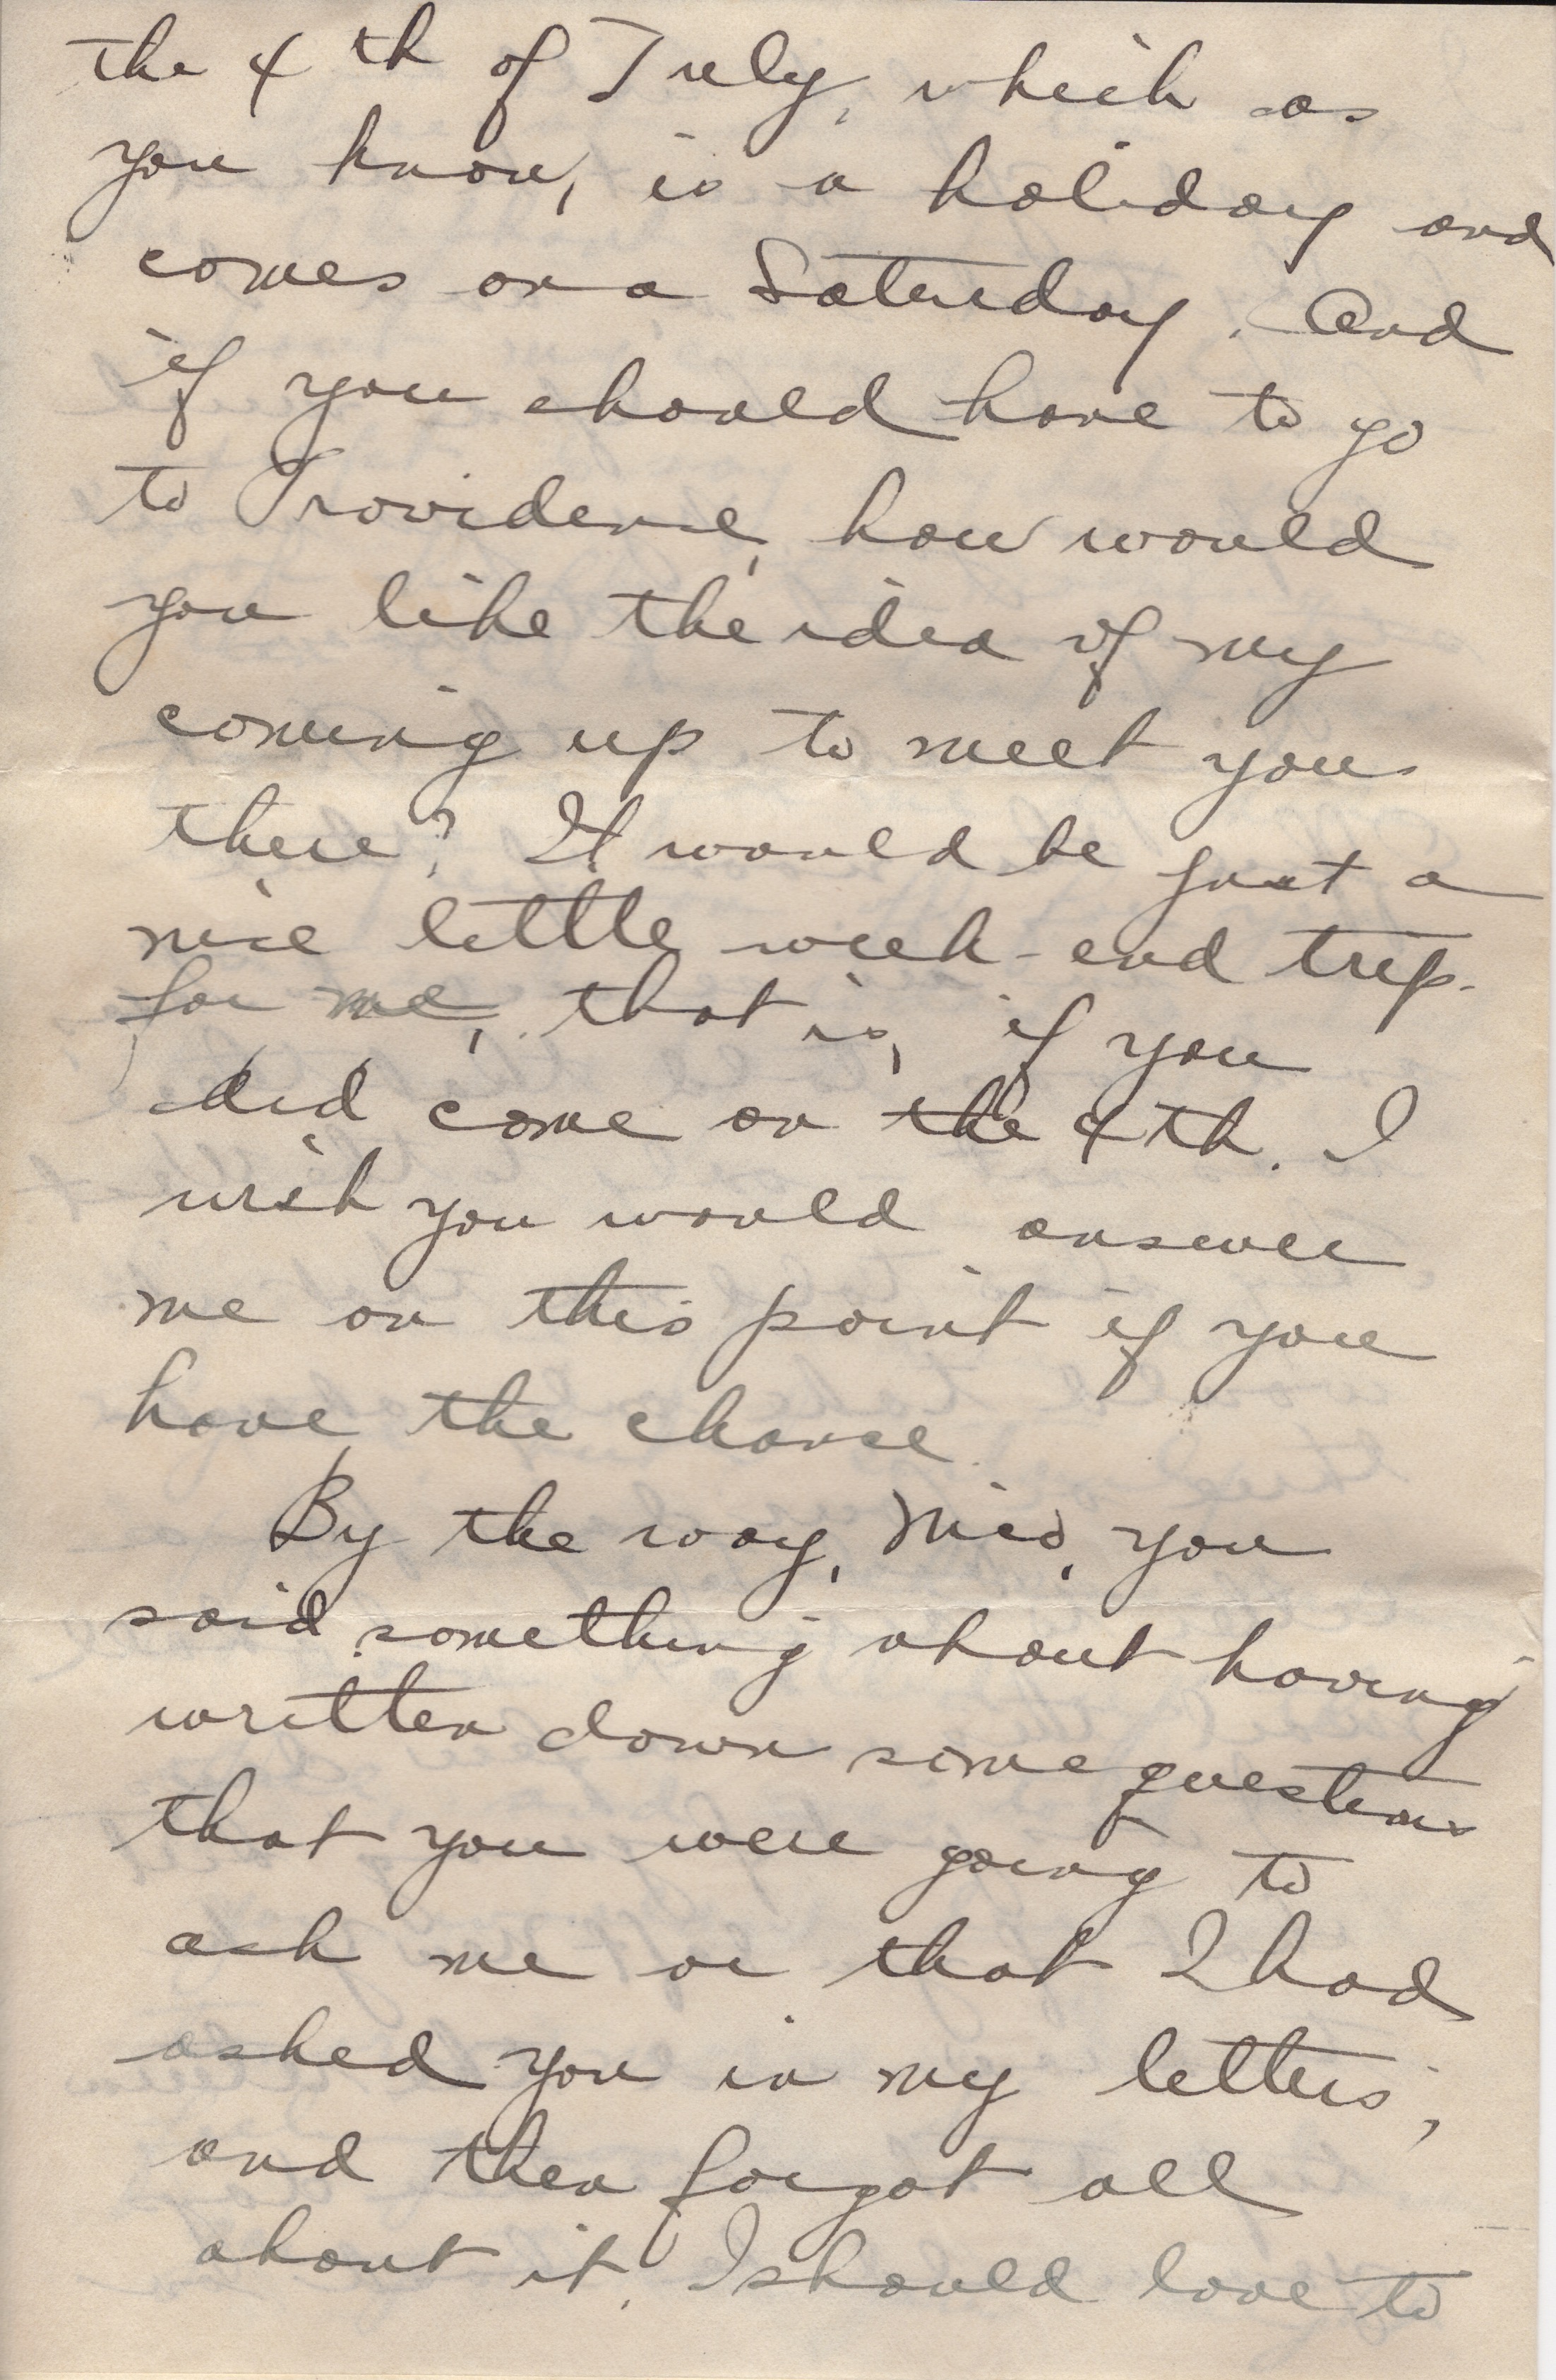 the 4th of July, which as
you know, is a holiday and
comes on a Saturday. And
if you should have to go
to Providence, how would
you like the idea of my
coming up to meet you
there? It would be just a
nice little week-end trip
for me, that is, if you
did come on the 4th. I
wish you would answer
me on this point if you
have the chance.
By the way, you
said something about having
written down some questions
that you were going to
ask me or that I had
asked you in my letters,
and then forgot all
about it. I should love to